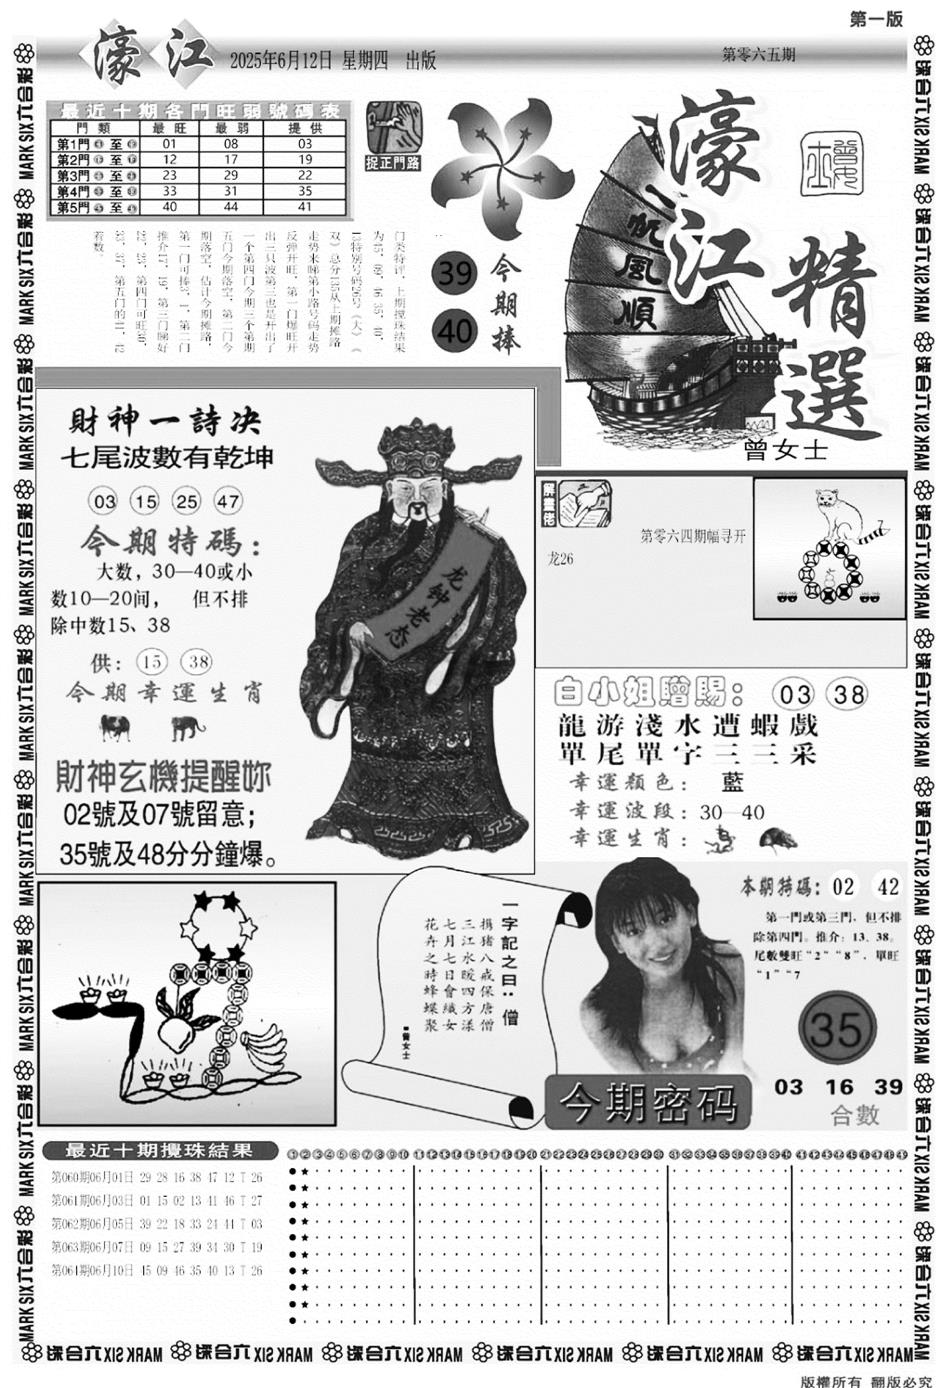 第一版
濠江
2025年6月12日 星期四 出版
第零六五期
最近十期各門旺弱號碼表
門類 最旺 最弱 提供
第1門 至 01 08 03
第2門 至 12 17 19
第3門 至 23 29 22
第4門 至 33 31 35
第5門 至 40 44 41
捉正門路
门类特评，上期搅珠结果
为15，09，46 35，40，
13特别号码26号（大）（
双）总分135从上期摊路
走势来睇第小路号码走势
反弹开旺，第一门爆旺开
出三只波第三也是开出了
一个第四门今期三个第期
五门今期落空，第二门今
期落空，估计今期摊路，
第一门可捧3，1，第二门
推介17，19，第三门睇好
22，23，第四门可旺30，
33，37，第五门的41，42
着数。
39
40
今期捧
濠江精選
一帆風順
曾女士
財神一詩决
七尾波數有乾坤
03 15 25 47
今期特碼：
大数，30—40或小
数10—20间， 但不排
除中数15、38
供：15 38
今期幸運生肖
財神玄機提醒妳
02號及07號留意；
35號及48分分鐘爆。
龙钟老态
解畫佬
第零六四期幅寻开
龙26
白小姐贈賜：03 38
龍游淺水遭蝦戲
單尾單字三三采
幸運顏色：藍
幸運波段：30—40
幸運生肖：
一字記之曰：僧
揹猪八戒保唐僧
三江水暖四方漾
七月七日會織女
花卉之時蜂蝶聚
■曾女士
本期特碼：02 42
第一門或第三門，但不排
除第四門。推介：13、38。
尾數雙旺“2”“8”，單旺
“1”“7
35
03 16 39
合數
今期密码
最近十期攪珠結果
第060期06月01日 29 28 16 38 47 12 T 26
第061期06月03日 01 15 02 13 41 46 T 27
第062期06月05日 39 22 18 33 24 44 T 03
第063期06月07日 09 15 27 39 34 30 T 19
第064期06月10日 45 09 46 35 40 13 T 26
①②③④⑤⑥⑦⑧⑨⑩⑪⑫⑬⑭⑮⑯⑰⑱⑲⑳㉑㉒㉓㉔㉕㉖㉗㉘㉙㉚㉛㉜㉝㉞㉟㊱㊲㊳㊴㊵㊶㊷㊸㊹㊺㊻㊼㊽㊾
六合彩 MARK SIX
版權所有 翻版必究